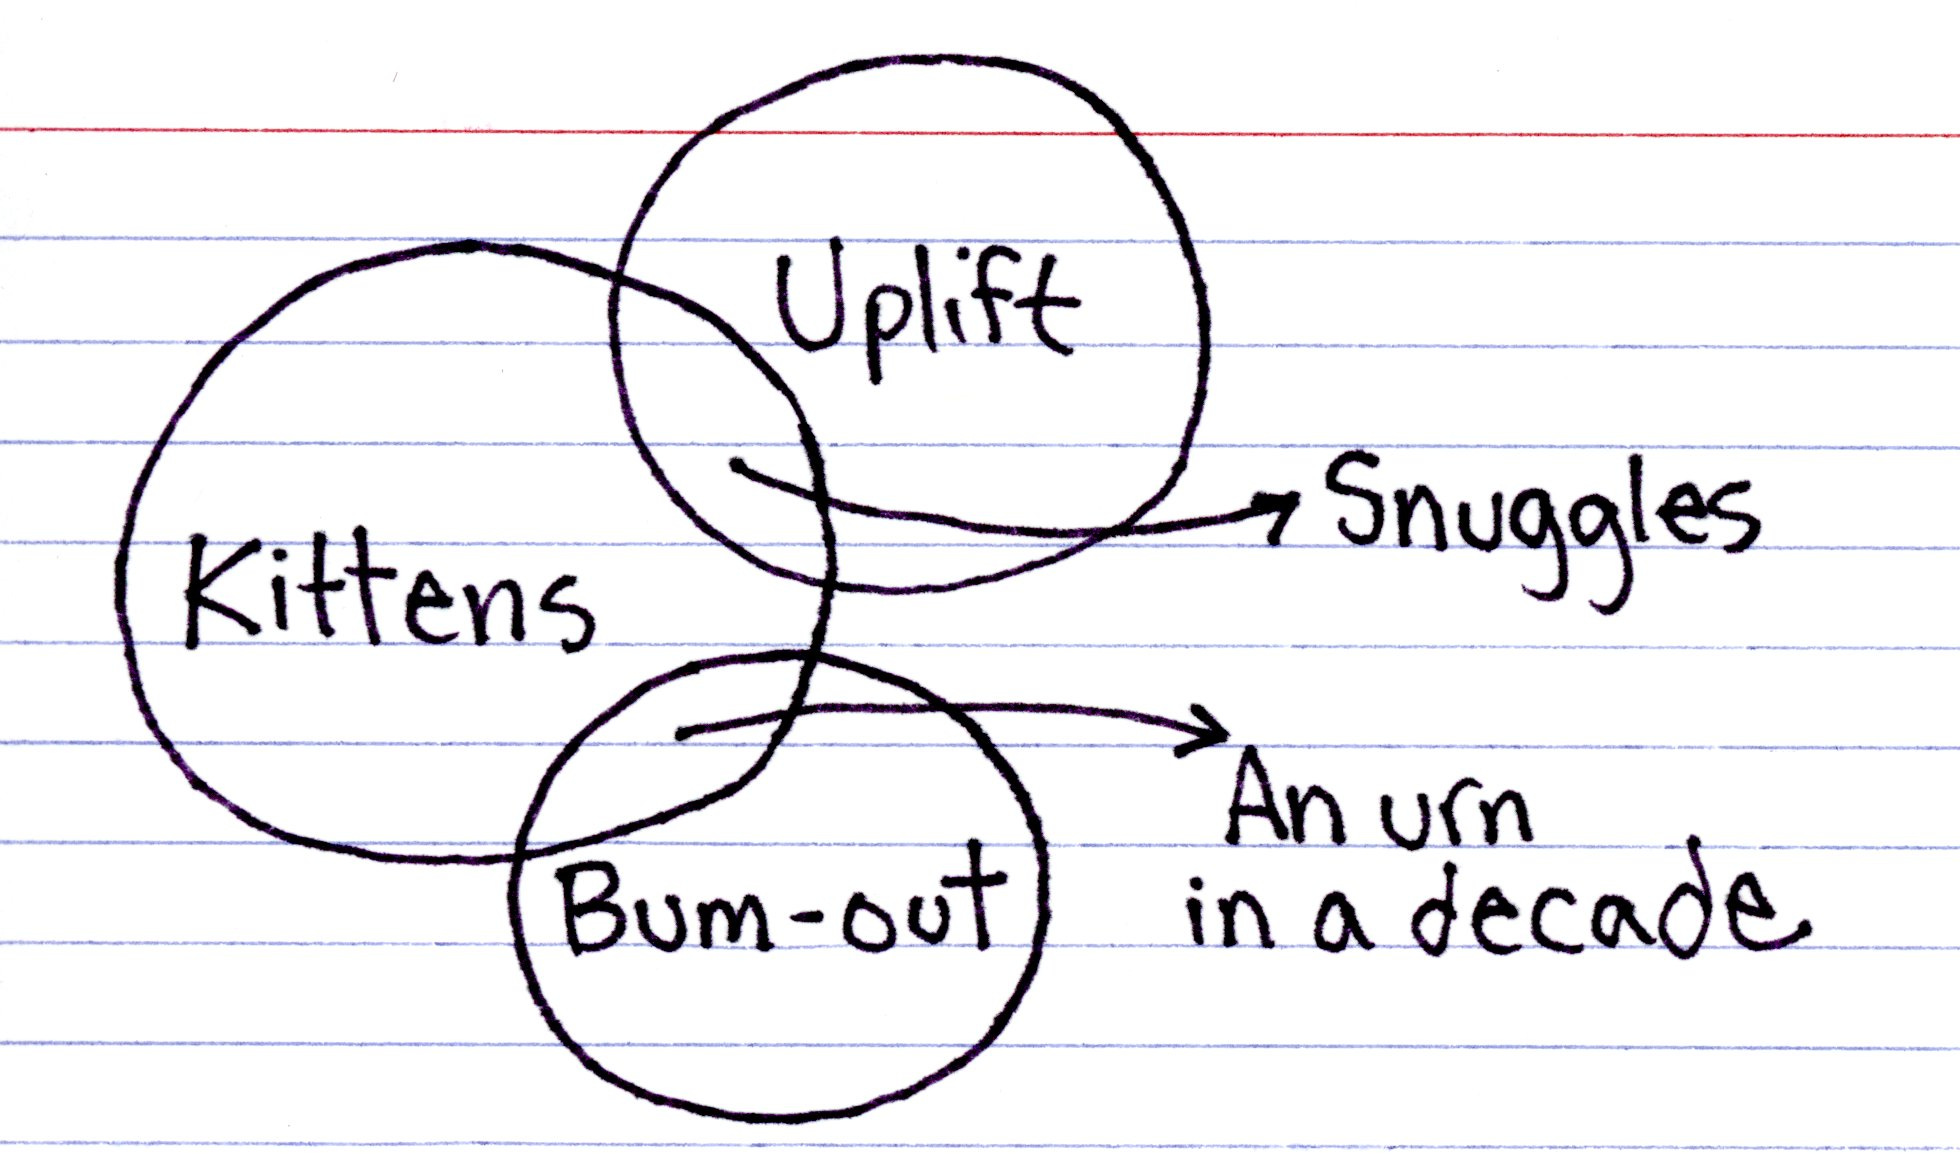 Uplift
Snuggles
Kittens
An urn
in a decade
Bum-out